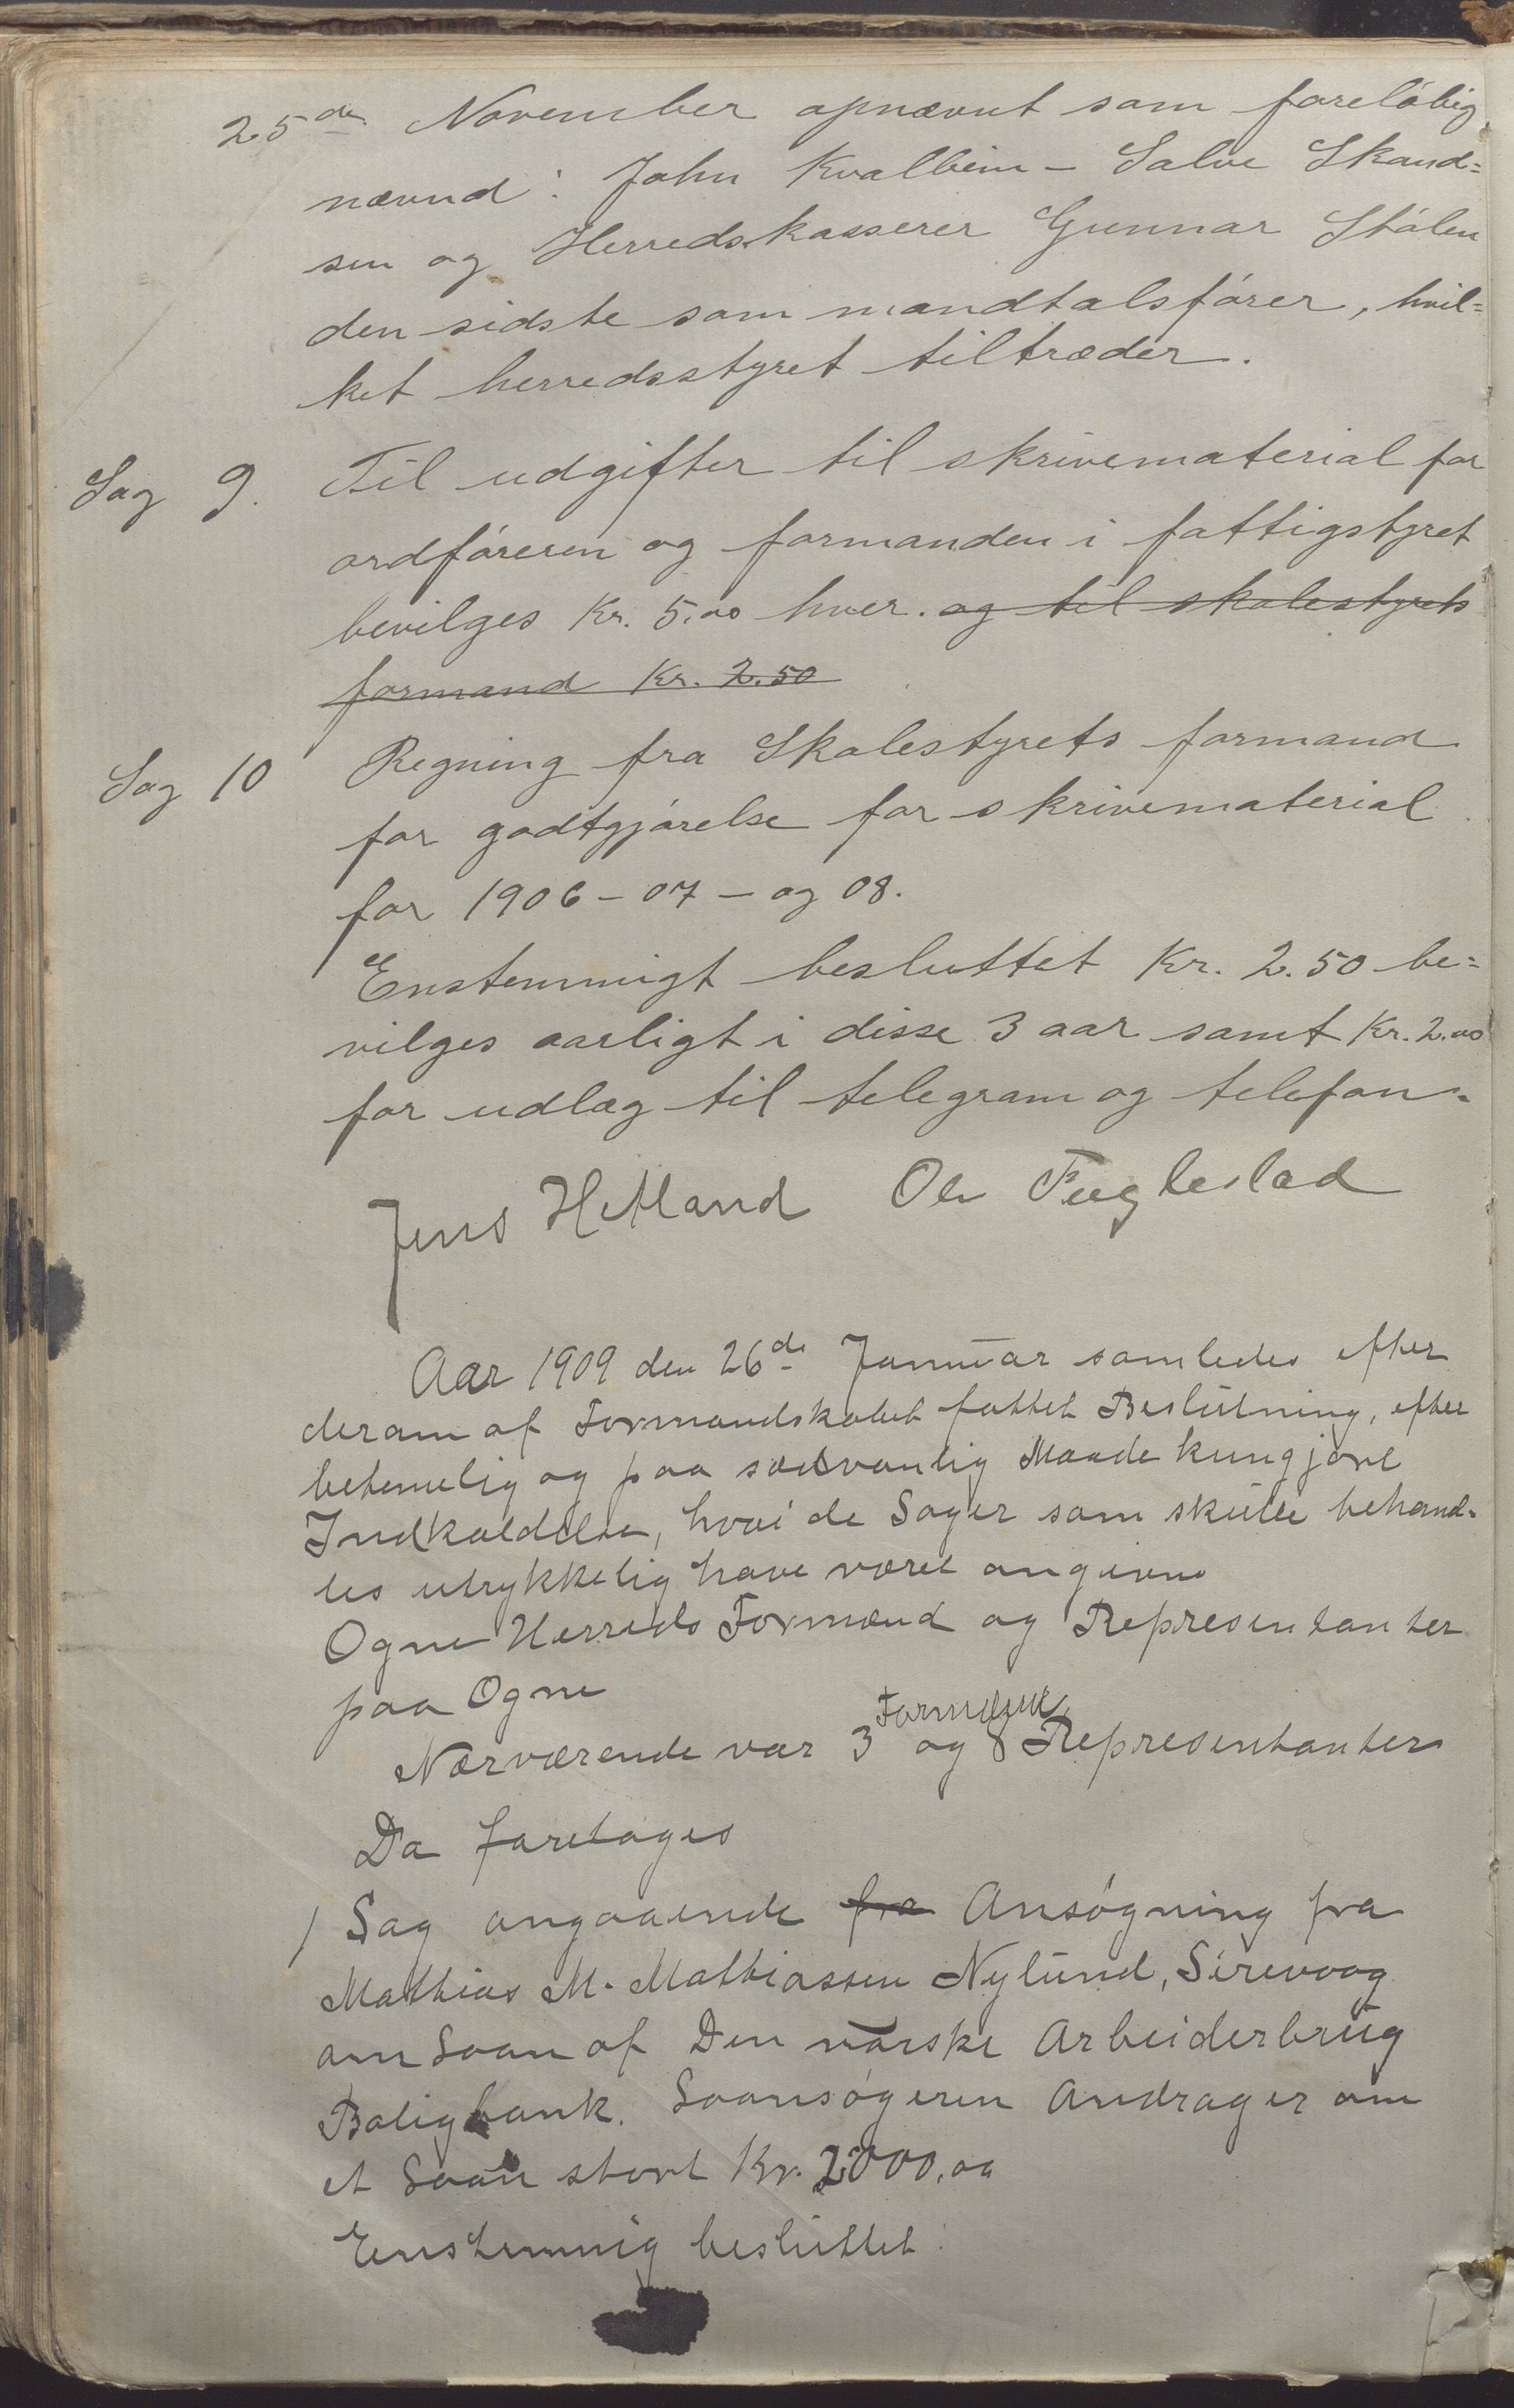 25de November opnævnt som foreløbig
nævnd: John Kvalbein - Salve Skand=
sen og Herredskasserer Gunnar Stølen
den sidste som mandtalsfører, hvil=
ket herredsstyret tiltræder.
Sag 9. Til udgifter til skrivematerial for
ordføreren og formanden i fattigstyret
bevilges Kr. 5.00 hver. og til skolestyrets
formand Kr. 2.50
Sag 10 Regning fra Skolestyrets formand
for godtgjørelse for skrivematerial
for 1906 - 07 - og 08.
Enstemmigt besluttet Kr. 2.50 be=
vilges aarligt i disse 3 aar samt Kr. 2.00
for udlæg til telegram og telefon.
Jens Hetland Ole Fuglestad
Aar 1909 den 26de Januar samledes efter
derom af Formandskabet fattet Beslutning, efter
betimelig og paa sædvanlig Maade kungjort
Indkaldelse, hvori de Sager som skulle behand-
les utrykkelig have været angivne
Ogne Herreds Formænd og Representanter
paa Ogne
Nærværende var 3 Formænd og 8 Representanter
Da foretages
1 Sag angaaende fra Ansøgning fra
Mathias M. Mathiassen Nylund, Sirevaag
om Laan af Den norske Arbeiderbrug
Boligbank. Laansøgeren Andrager om
et Laan stort Kr. 2000,00
Enstemmig besluttet: